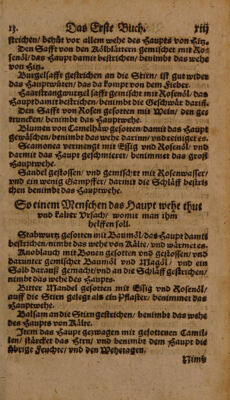 13. Das Erste Buch. xiij
strichen/ behüt vor allem wehe des Haupts von Hitz.
Den Safft von den Kölblättern gemischet mit Ros
senöl/ das Haupt damit bestrichen/ benimbt das wehe
von Hitz.
Burgelsafft gestrichen an die Stirn/ ist gut wider
das Hauptwüten/ das da kompt von dem Fieber.
safft gemischt mit Rosenöl/ das
Hauptdamit bestrichen/ benimbt die Geschwär
Den Safft von Rosen gesotten mit Wein/ den
truncken benimbt das Hauptwehe.
Blumen von Camelhäw gesotten damit das Haupt
gewäschen/ benimbt das wehe darinn/ vnd reiniget es.
Scamonea vermengt mit Essig vnd Rosenöl/ vnd
darmit das Haupt geschmieret/ benimmet das groß
Hauptwehe.
Sandel gestossen/ vnd gemischt mit Rosenwasser/
vnd ein wenig Gampffer/ darmit die Schläff bestri
chen benimbt das Hauptwehe.
So einem Menschen das Haupt wehe thut
vnd kalter Vrsach/ womit man ihm
helffen soll.
Stabwurtz gesotten mit Baumöl/ das Haupt damit
bestrichen/ nimbt das wehe von Kälte/ vnd wärmet es.
Knoblauch mit Bonen gesotten vnd gestossen/ vnd
darunter gemischt Baumöl vnd Magöl/ vnd ein
Salb darauß gemacht/ vnd an die Schläff gestrichen/
nimbt das wehe des Haupts.
Bitter Mandel gesotten mit Essig vnd Rosenöl/
auff die Stirn gelegt als ein Pflaster/ benimmet das
Hauptwehe.
Balsam an die Stirn gestrichen/ benimbt das wehe
des Haupts von Kälte.
Item das Haupt gezwagen mit gesottenen Camil
len/ stärcket das Hirn/ vnd benimbt dem Haupt die
übrige Feuchte/ vnd den Wehetagen.
Nimb